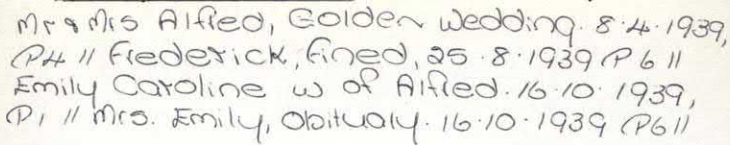 Mr & Mrs Alfred, Golden Wedding. 8.4.1939,
P4 // Frederick, fined, 25.8.1939 P6 //
Emily Caroline w of Alfred. 16.10.1939,
P1 // Mrs. Emily, Obitualy. 16.10.1939 P6 //